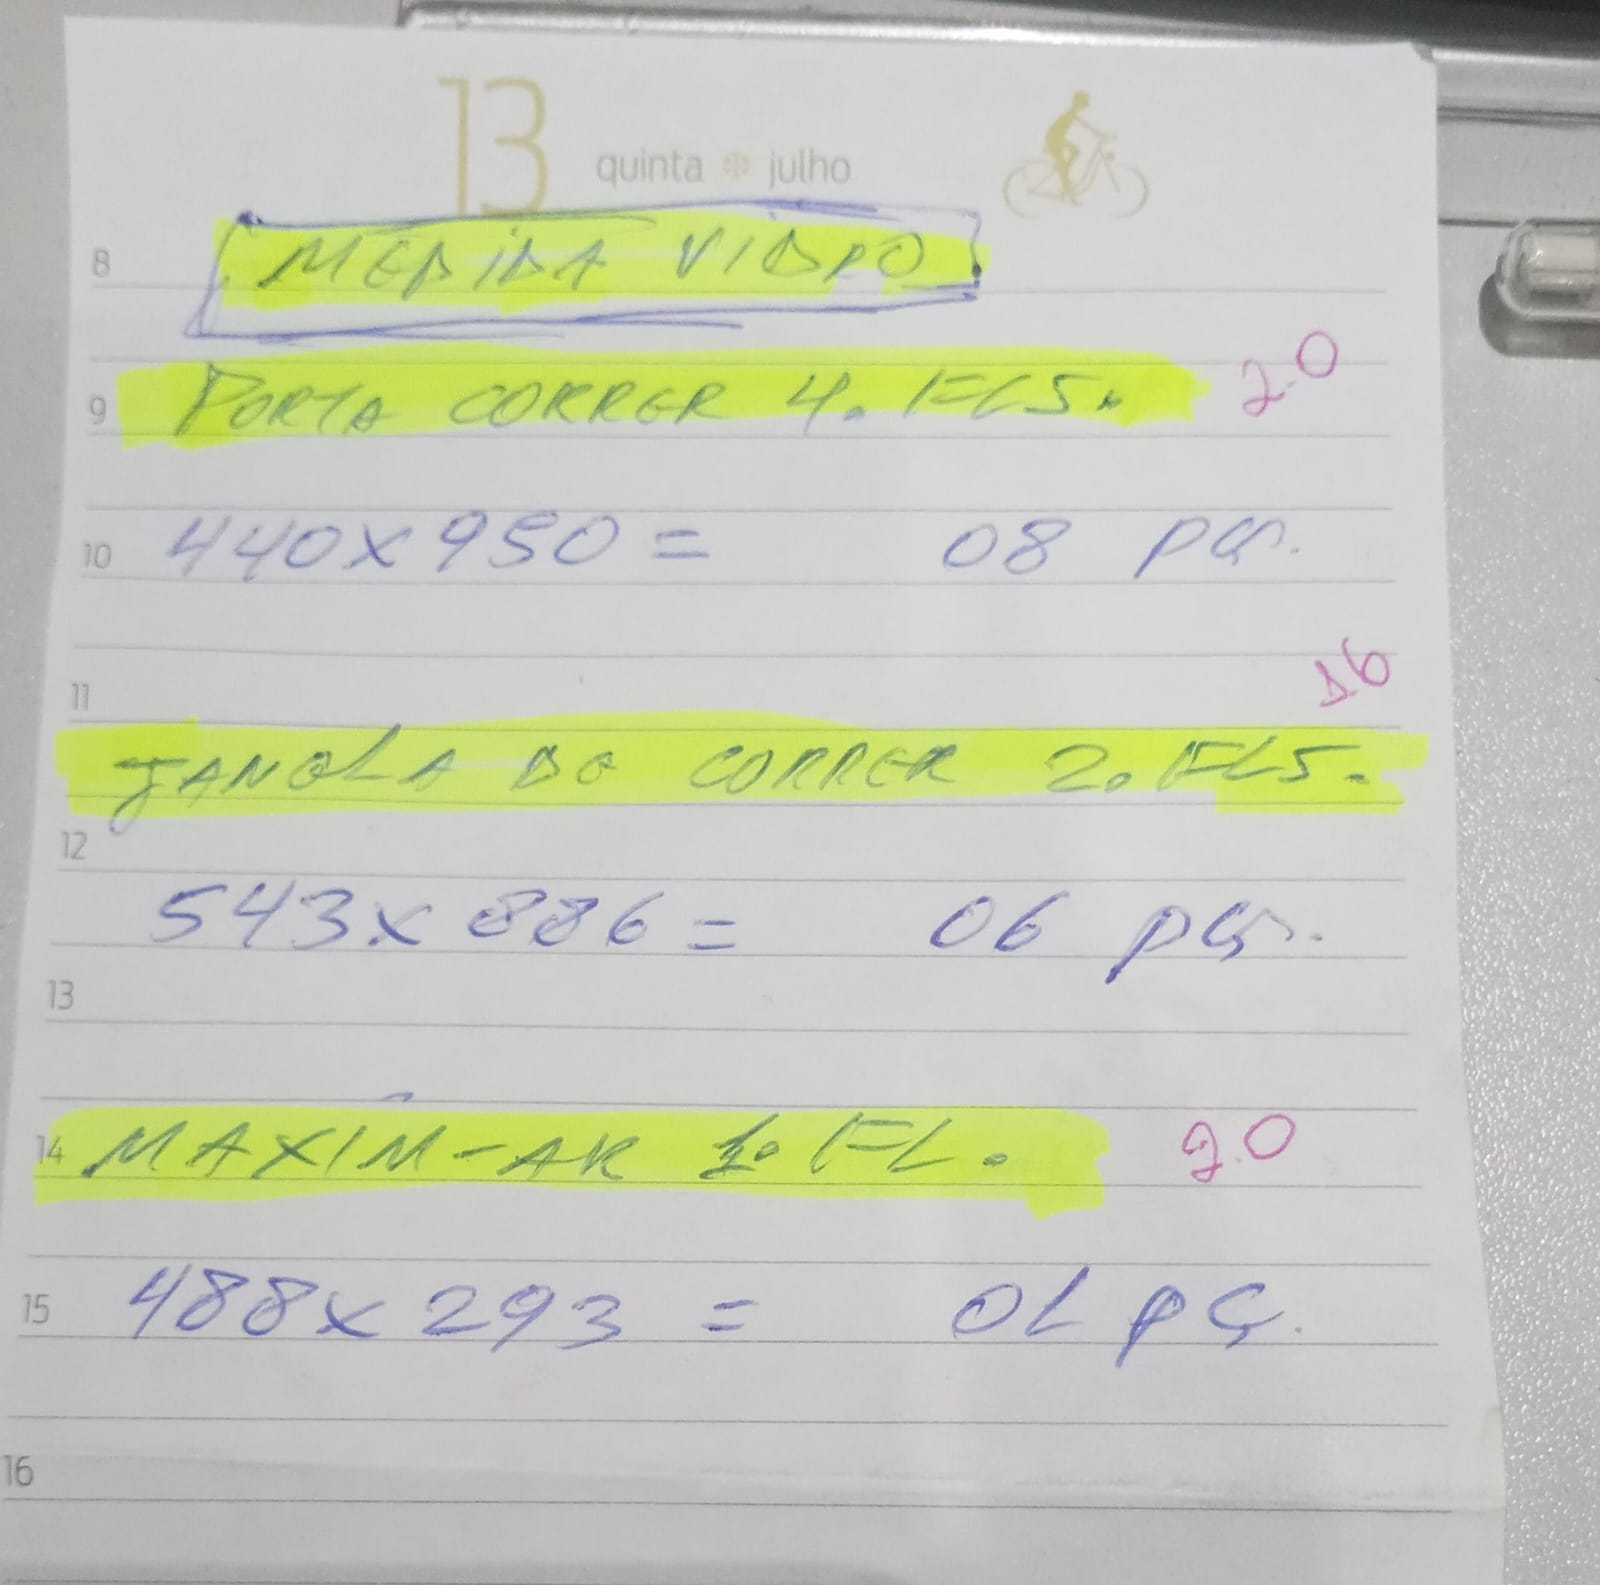 13 quinta julho
8 MEDIDA VIDRO
9 PORTA CORRER 4. FLS. 20
10 440x950= 08 pçs.
11 16
JANELA DE CORRER 2. FLS.
12
543x886= 06 pçs.
13
14 MAXIM-AR 1. FL. 20
15 488x293 = 01 pç.
16